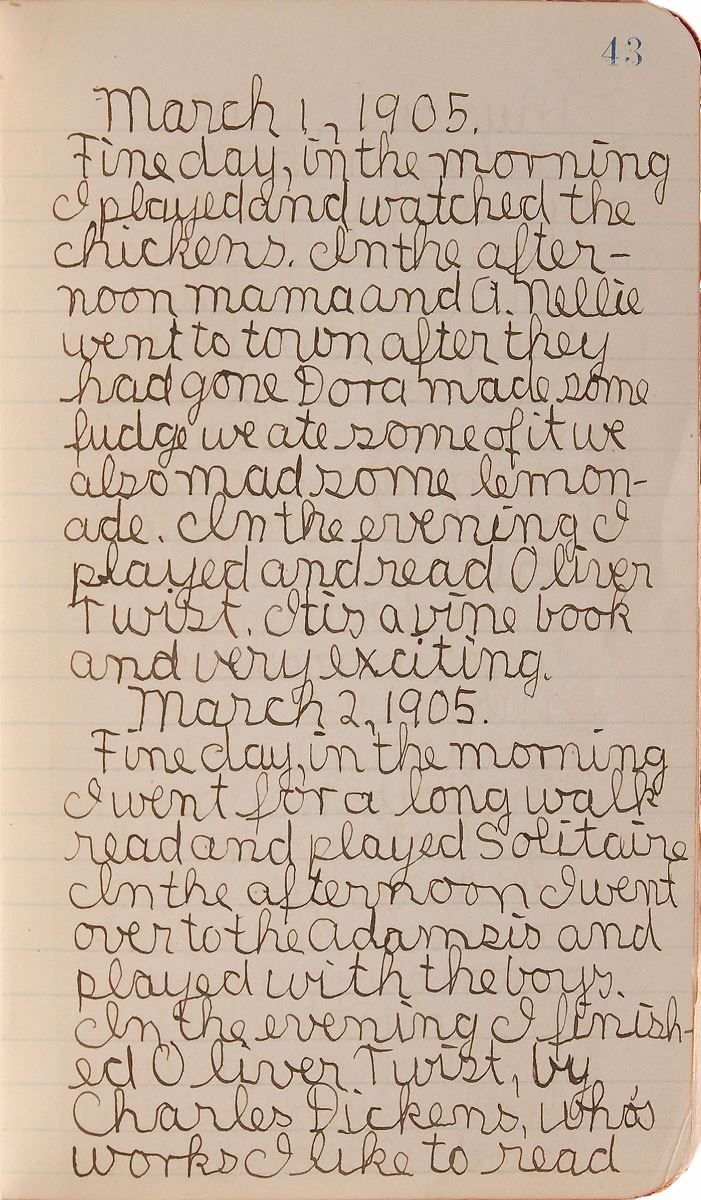 43
March 1, 1905.
Fine day, in the morning
I played and watched the
chickens. In the after-
noon mama and A. Nellie
went to town after they
had gone Dora made some
fudge we ate some of it we
also mad some lemon-
ade. In the evening I
played and read Oliver
Twist. It is a vine book
and very exciting.
March 2, 1905.
Fine day, in the morning
I went for a long walk
read and played Solitaire
In the afternoon I went
over to the Adamsis and
played with the boys.
In the evening I finish-
ed Oliver Twist, by
Charles Dickens, who's
works I like to read